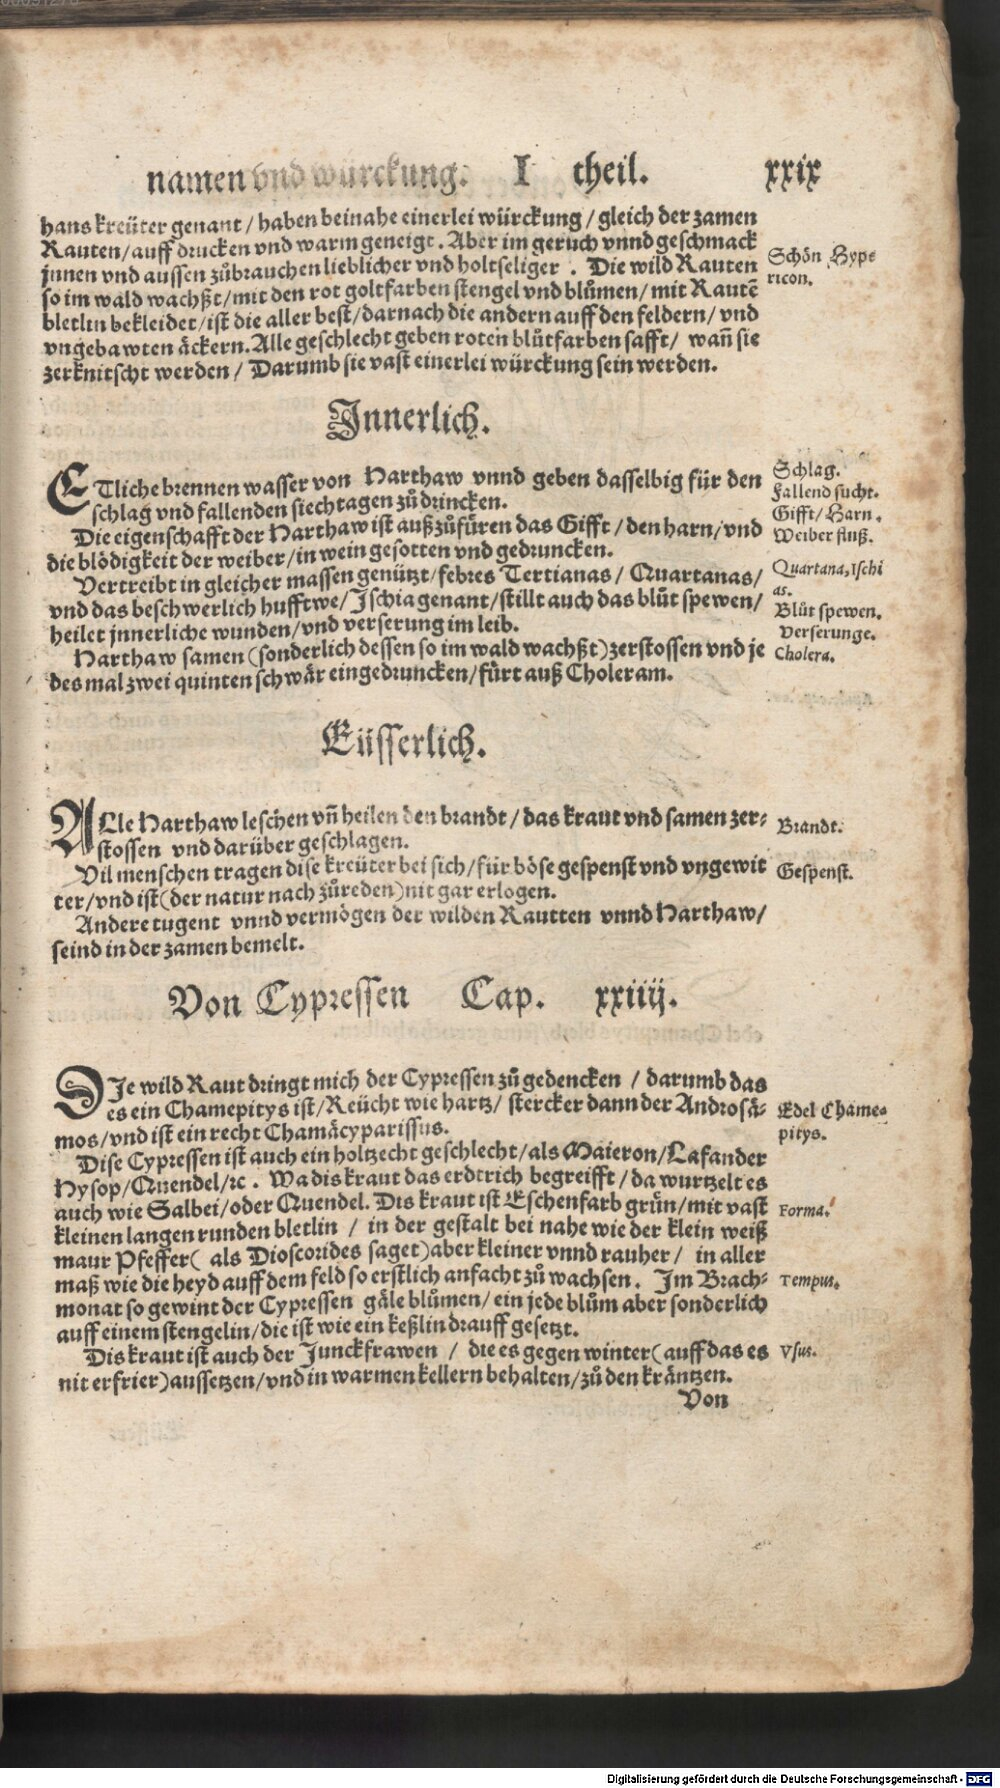 namen vnd würckung. I theil. xxix
hans kreüter genant / haben beinahe einerlei würckung / gleich der zamen
Rauten / auff drucken vnd warm geneigt. Aber im geruch vnnd geschmack
jnnen vnd aussen zůbrauchen lieblicher vnd holtseliger . Die wild Rauten
Schön Hype
ricon.
so im wald wachßt / mit den rot goltfarben stengel vnd blůmen / mit Rautē
bletlin bekleidet / ist die aller best / darnach die andern auff den feldern / vnd
vngebawten äckern. Alle geschlecht geben roten blůtfarben safft / wañ sie
zerknitscht werden / Darumb sie vast einerlei würckung sein werden.
Jnnerlich.
ETliche brennen wasser von Harthaw vnnd geben dasselbig für den
schlag vnd fallenden siechtagen zů drincken.
Schlag.
Fallend sucht.
Die eigenschafft der Harthaw ist außzůfüren das Gifft / den harn / vnd
die blödigkeit der weiber / in wein gesotten vnd gedruncken.
Gifft / Harn.
Weiber fluß.
Vertreibt in gleicher massen genützt / febres Tertianas / Quartanas /
vnd das beschwerlich hufftwe / Jschia genant / stillt auch das blůt spewen /
heilet jnnerliche wunden / vnd verserung im leib.
Quartana, Ischi
as.
Blůt spewen.
Verserunge.
Harthaw samen (sonderlich dessen so im wald wachßt) zerstossen vnd je
des mal zwei quinten schwär eingedruncken / fürt auß Choleram.
Cholera.
Eüsserlich.
ALle Harthaw leschen vñ heilen den brandt / das kraut vnd samen zer-
stossen vnd darüber geschlagen.
Brandt.
Vil menschen tragen dise kreüter bei sich / für böse gespenst vnd vngewit
ter / vnd ist (der natur nach zůreden) nit gar erlogen.
Gespenst.
Andere tugent vnnd vermögen der wilden Rautten vnnd Harthaw /
seind in der zamen bemelt.
Von Cypressen Cap. xxiiij.
DJe wild Raut dringt mich der Cypressen zů gedencken / darumb das
es ein Chamepitys ist / Reücht wie hartz / stercker dann der Androsä-
mos / vnd ist ein recht Chamäcyparissus.
Edel Chame-
pitys.
Dise Cypressen ist auch ein holtzecht geschlecht / als Maieron / Lafander
Hysop / Quendel / ꝛc . Wa dis kraut das erdtrich begreifft / da wurtzelt es
auch wie Salbei / oder Quendel. Dis kraut ist Eschenfarb grün / mit vast
kleinen langen runden bletlin / in der gestalt bei nahe wie der klein weiß
maur Pfeffer ( als Dioscorides saget) aber kleiner vnnd rauher / in aller
maß wie die heyd auff dem feld so erstlich anfacht zů wachsen. Jm Brach-
monat so gewint der Cypressen gäle blůmen / ein jede blům aber sonderlich
auff einem stengelin / die ist wie ein keßlin drauff gesetzt.
Forma.
Tempus.
Dis kraut ist auch der Junckfrawen / die es gegen winter (auff das es
nit erfrier) aussetzen / vnd in warmen kellern behalten / zů den kräntzen.
Vsus.
Von
Digitalisierung gefördert durch die Deutsche Forschungsgemeinschaft - DFG